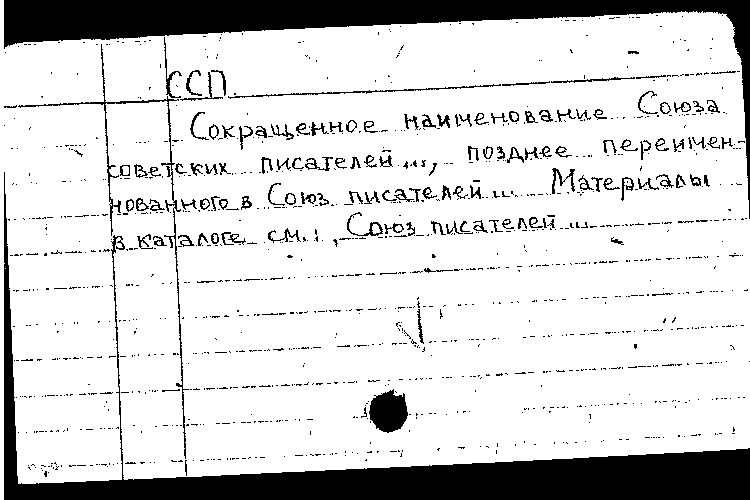 ССП
Сокращенное наименование Союза
советских писателей..., позднее переимен-
нованного в Союз писателей... Материалы
в каталоге см.: Союз писателей...